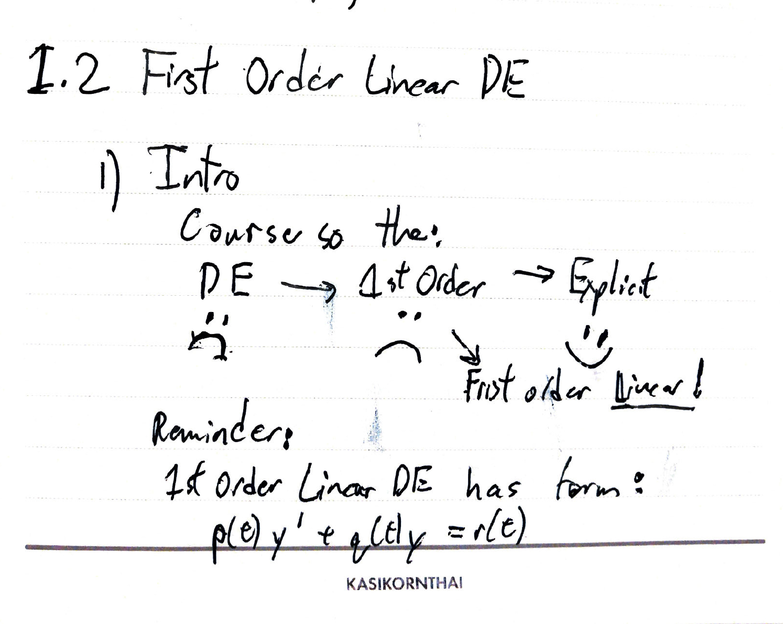 1.2 First Order Linear DE
1) Intro
Course so the:
DE → 1st Order → Explicit
First order Linear!
Reminder:
1st Order Linear DE has form:
p(t) y' + q(t) y = r(t)
KASIKORNTHAI